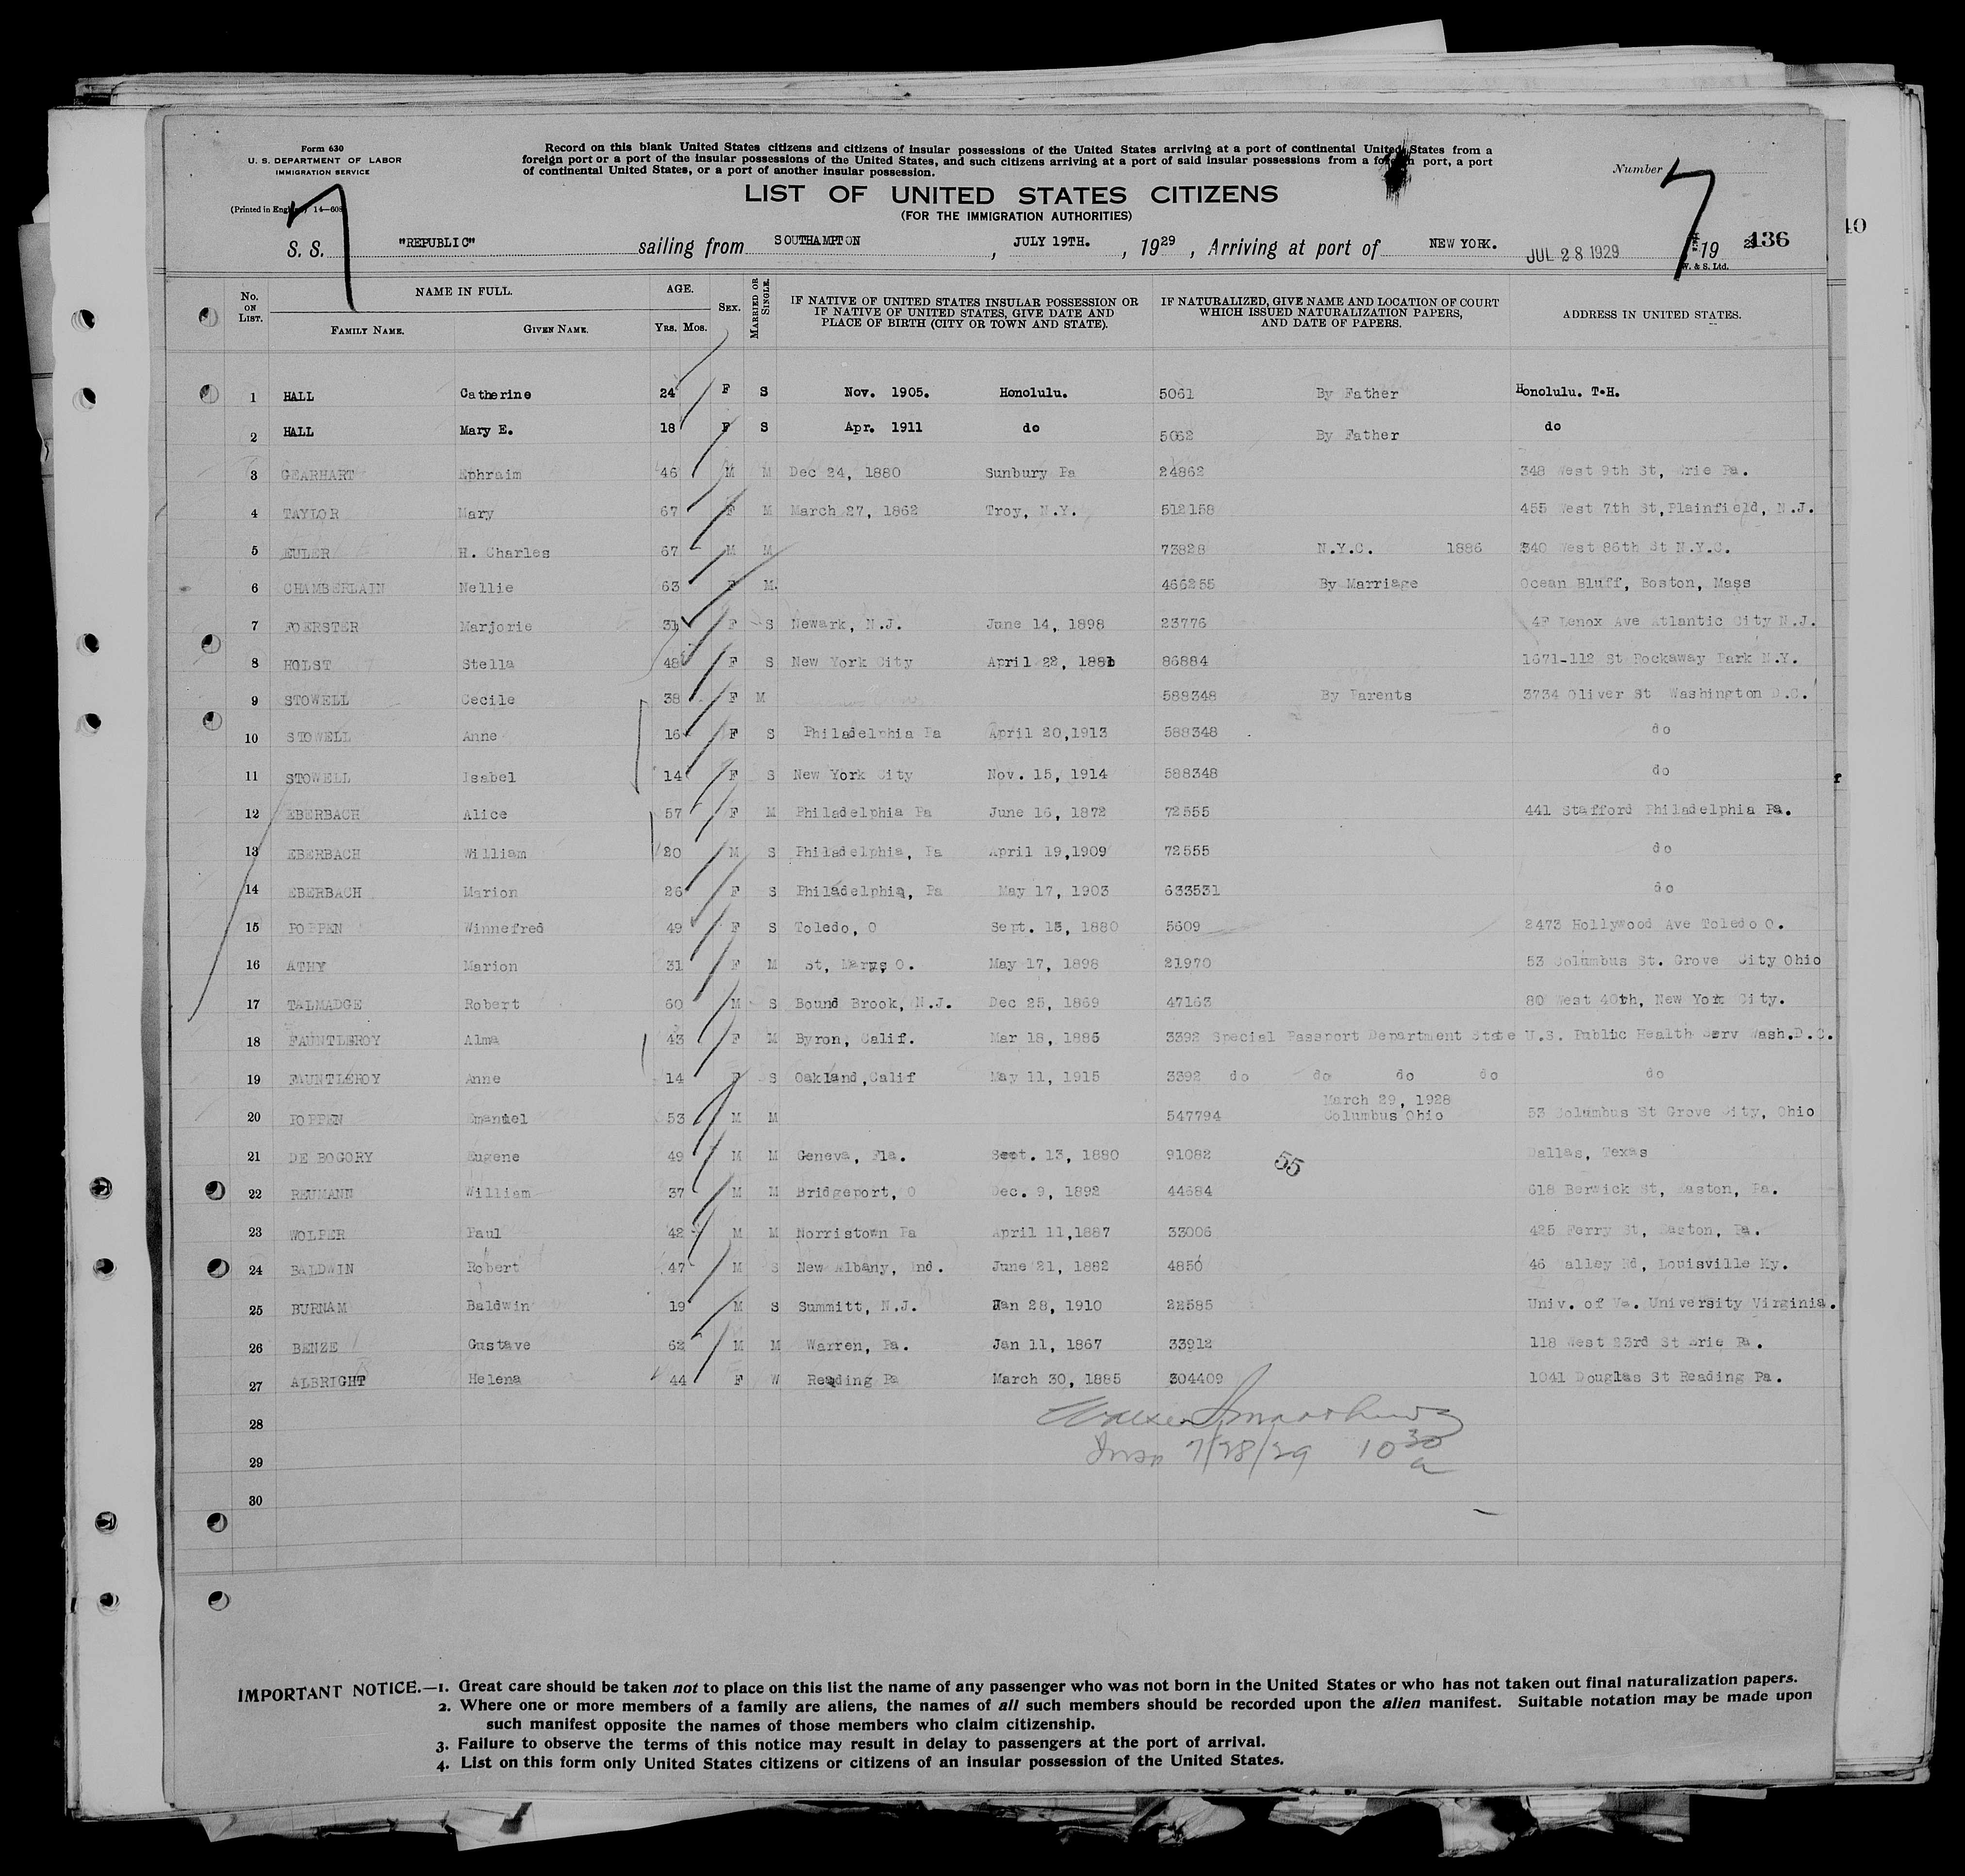 Form 630
U. S. DEPARTMENT OF LABOR
IMMIGRATION SERVICE
(Printed in England) 14—608
Record on this blank United States citizens and citizens of insular possessions of the United States arriving at a port of continental United States from a
foreign port or a port of the insular possessions of the United States, and such citizens arriving at a port of said insular possessions from a foreign port, a port
of continental United States, or a port of another insular possession.
Number 7
7
LIST OF UNITED STATES CITIZENS
(FOR THE IMMIGRATION AUTHORITIES)
S. S. "REPUBLIC" sailing from SOUTHAMPTON, JULY 19TH., 1929, Arriving at port of NEW YORK. JUL 28 1929 19 29
136
W. & S. Ltd.
40
No. ON LIST. NAME IN FULL. FAMILY NAME. GIVEN NAME. AGE. YRS. MOS. SEX. MARRIED OR SINGLE. IF NATIVE OF UNITED STATES INSULAR POSSESSION OR IF NATIVE OF UNITED STATES, GIVE DATE AND PLACE OF BIRTH (CITY OR TOWN AND STATE). IF NATURALIZED, GIVE NAME AND LOCATION OF COURT WHICH ISSUED NATURALIZATION PAPERS, AND DATE OF PAPERS. ADDRESS IN UNITED STATES.
1 HALL Catherine 24 F S Nov. 1905. Honolulu. 5061 By Father Honolulu. T.H.
2 HALL Mary E. 18 F S Apr. 1911 do 5062 By Father do
3 GEARHART Ephraim 46 M M Dec 24, 1880 Sunbury Pa 24862 348 West 9th St, Erie Pa.
4 TAYLOR Mary 67 F M March 27, 1862 Troy, N.Y. 512158 455 West 7th St, Plainfield, N.J.
5 EULER H. Charles 67 M M 73828 N.Y.C. 1886 340 West 86th St N.Y.C.
6 CHAMBERLAIN Nellie 63 F M. 466255 By Marriage Ocean Bluff, Boston, Mass
7 FOERSTER Marjorie 31 F S Newark, N.J. June 14, 1898 23776 4F Lenox Ave Atlantic City N.J.
8 HOLST Stella 48 F S New York City April 22, 1881 86884 1671-112 St Rockaway Park N.Y.
9 STOWELL Cecile 38 F M 588348 By Parents 3734 Oliver St Washington D.C.
10 STOWELL Anne 16 F S Philadelphia Pa April 20,1913 588348 do
11 STOWELL Isabel 14 F S New York City Nov. 15, 1914 588348 do
12 EBERBACH Alice 57 F M Philadelphia Pa June 16, 1872 72555 441 Stafford Philadelphia Pa.
13 EBERBACH William 20 M S Philadelphia, Pa April 19,1909 72555 do
14 EBERBACH Marion 26 F S Philadelphia, Pa May 17, 1903 633531 do
15 POPPEN Winnefred 49 F S Toledo, O Sept. 15, 1880 5609 2473 Hollywood Ave Toledo O.
16 ATHY Marion 31 F M St, Marys O. May 17, 1898 21970 53 Columbus St. Grove City Ohio
17 TALMADGE Robert 60 M S Bound Brook, N.J. Dec 25, 1869 47163 80 West 40th, New York City.
18 FAUNTLEROY Alma 43 F M Byron, Calif. Mar 18, 1886 3392 Special Passport Department State U.S. Public Health Serv Wash.D.C.
19 FAUNTLEROY Anne 14 F S Oakland,Calif May 11, 1915 3392 do do do do do
20 POPPEN Emanuel 53 M M 547794 March 29, 1928 Columbus Ohio 53 Columbus St Grove City, Ohio
21 DE BOGORY Eugene 49 M M Geneva, Fla. Sept. 13, 1880 91082 55 Dallas, Texas
22 REUMANN William 37 M M Bridgeport, O Dec. 9, 1892 44684 618 Berwick St, Easton, Pa.
23 WOLPER Paul 42 M M Norristown Pa April 11,1887 33006 425 Ferry St, Easton, Pa.
24 BALDWIN Robert 47 M S New Albany, Ind. June 21, 1882 4850 46 Valley Rd, Louisville Ky.
25 BURNAM Baldwin 19 M S Summitt, N.J. Jan 28, 1910 22585 Univ. of Va. University Virginia.
26 BENZE Gustave 62 M M Warren, Pa. Jan 11, 1867 33912 118 West 23rd St Erie Pa.
27 ALBRIGHT Helena 44 F W Reading Pa March 30, 1885 304409 1041 Douglas St Reading Pa.
28
29 Insp 7/28/29 10 30 a
30
IMPORTANT NOTICE.—1. Great care should be taken not to place on this list the name of any passenger who was not born in the United States or who has not taken out final naturalization papers.
2. Where one or more members of a family are aliens, the names of all such members should be recorded upon the alien manifest. Suitable notation may be made upon
such manifest opposite the names of those members who claim citizenship.
3. Failure to observe the terms of this notice may result in delay to passengers at the port of arrival.
4. List on this form only United States citizens or citizens of an insular possession of the United States.